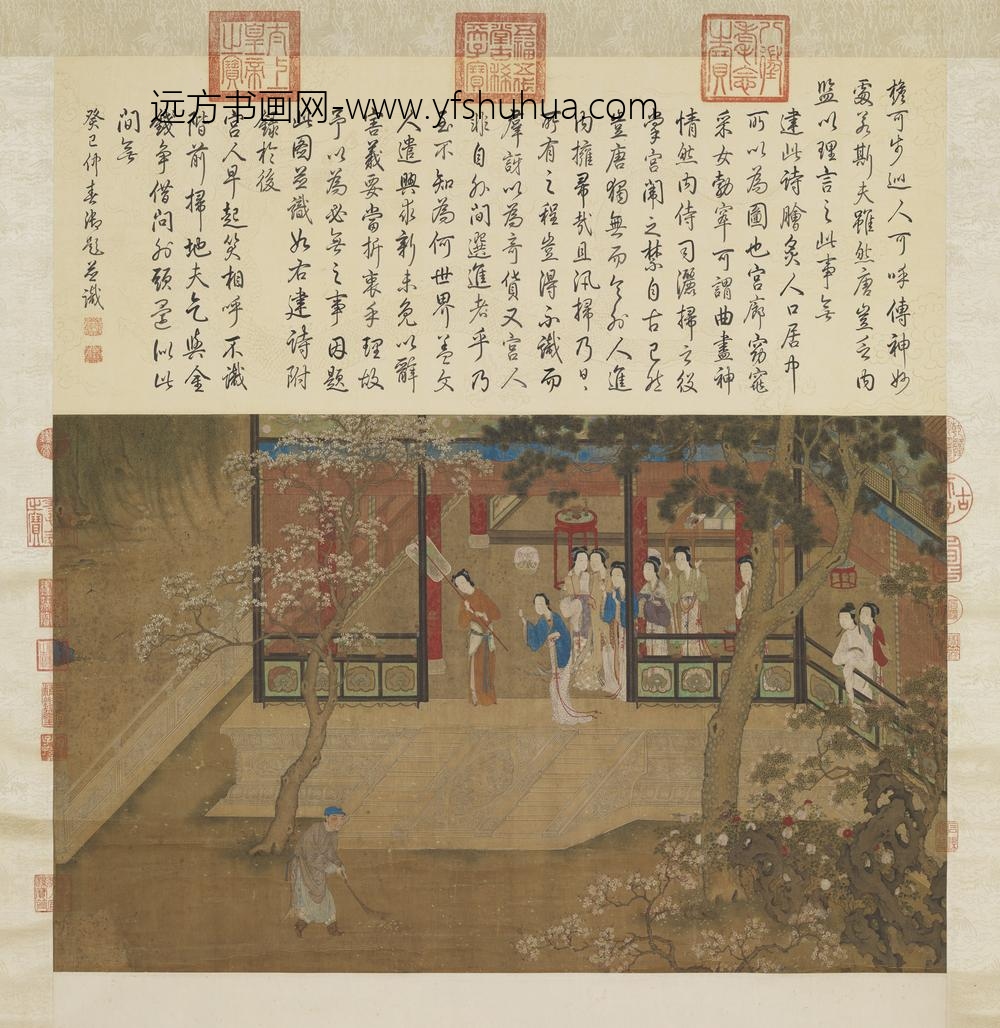 太上皇帝之寶
八徵耄念之寶
远方书画网-www.yfshuhua.com
檐可步巡人可呼傳神妙
處若斯夫雖然唐豈乏內
監以理言之此事無
建此詩膾炙人口居巾
所以為圖也宮廊窈窕
采女勃窣可謂曲盡神
情然內侍司灑掃之役
掌宮闈之禁自古已然
豈唐獨無而令外人進
內擁帚哉且汛掃乃日〻
所有之程豈得不識而
羣訝以為奇貨又宮人
非自外間選進者乎乃
至不知為何世界蓋文
人遣興求新未免以辭
害義要當折衷乎理故
予以為必無之事因題
此圖並識如右建詩附
錄於後
宮人早起笑相呼不識
階前掃地夫乞與金
錢爭借問外頭還似此
間無
癸巳仲春御題並識